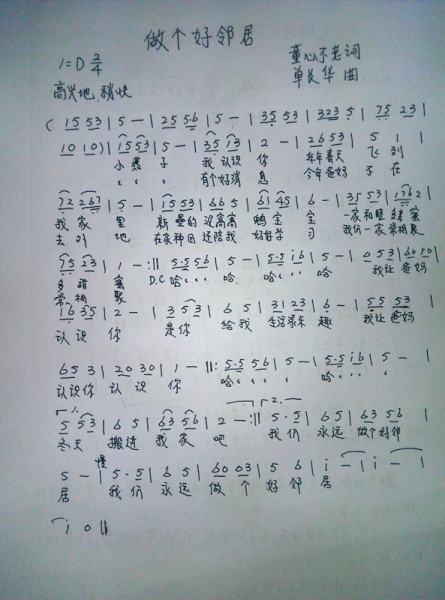 做个好邻居
1=D 2/4 童心不老词
高兴地 稍快 单长华 曲
( 15 53 | 5 - | 25 56 | 5 - | 35 53 | 323 5 | 75 23 |
10 10) | 1553 | 5 - | 35 13 | 2 - | 26 53 | 5 1 |
小燕 子 我认识 你 年年春天 飞到
有个好消 息 今年爸妈 不在
72 267 | 5 - | 15 53 | 66 5 | 61 45 | 6 - | 35 53 | 1762 |
我家 里 新垒的 泥窝窝 鸭宝 宝 一家和睦
去外 地 在家种田 还陪我 好好学 习 我们一家常相聚
75 23 | 1 - :|| 5·5 56 | 5 - | 5·5 i6 | 5 - | 0 53 | 60 50 |
多甜 蜜 D.C 哈 哈 哈 哈 我让 爸妈
常相 聚
16 35 | 2 - | 3 53 | 6 5 | 31 23 | 6 - | 55 53 |
认识 你 是你 给我 生活添乐 趣 我让爸妈
65 3 | 20 30 | 1 - ||: 5·5 56 | 5 - | 5·5 i6 | 5 - |
认识你 认识 你 哈 哈
1. 2.
5 53 | 6 5 | 63 56 | 2 - :|| 5·5 | 6 5 | 63 56 |
冬天 搬进 我家 吧 我们 永远 做个好邻
慢
5 - | 5·5 | 6 5 | 60 03 | 5 6 | i - | i - |
居 我们 永远 做 个 好 邻 居
i 0 ||